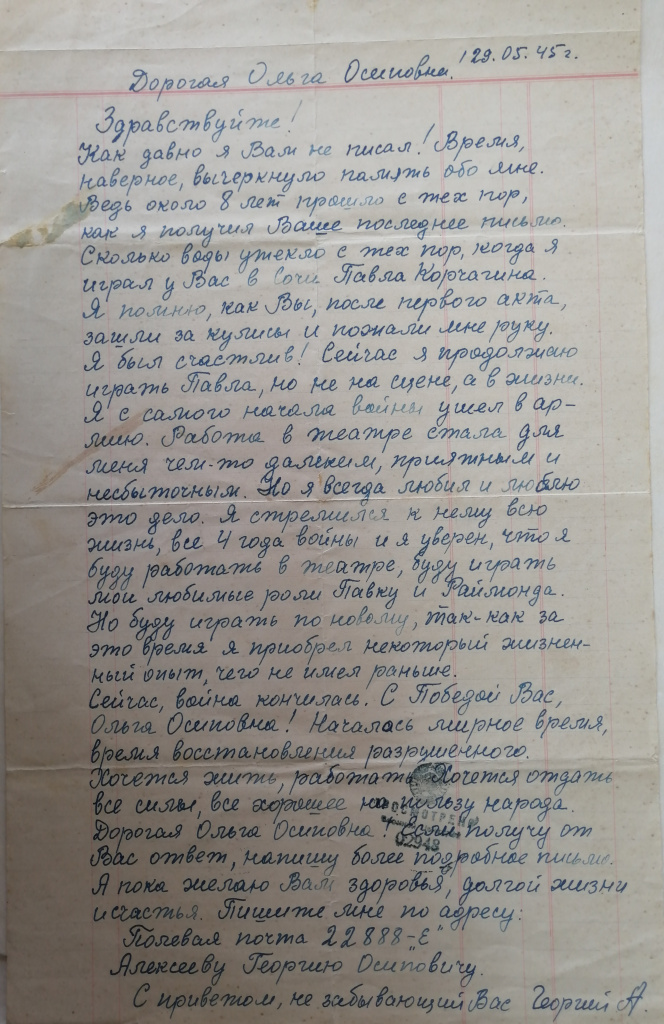 29.05.45 г.
Дорогая Ольга Осиповна!
Здравствуйте!
Как давно я Вам не писал! Время,
наверное, вычеркнуло память обо мне.
Ведь около 8 лет прошло с тех пор,
как я получил Ваше последнее письмо.
Сколько воды утекло с тех пор, когда я
играл у Вас в Сочи Павла Корчагина.
Я помню, как Вы, после первого акта,
зашли за кулисы и пожали мне руку.
Я был счастлив! Сейчас я продолжаю
играть Павла, но не на сцене, а в жизни.
Я с самого начала войны ушел в ар-
мию. Работа в театре стала для
меня чем-то далеким, приятным и
несбыточным. Но я всегда любил и люблю
это дело. Я стремился к нему всю
жизнь, все 4 года войны и я уверен, что я
буду работать в театре, буду играть
мои любимые роли Павку и Раймонда.
Но буду играть по новому, так-как за
это время я приобрел некоторый жизнен-
ный опыт, чего не имел раньше.
Сейчас, война кончилась. С Победой Вас,
Ольга Осиповна! Началась мирное время,
время восстановления разрушенного.
Хочется жить, работать. Хочется отдать
все силы, все хорошее на пользу народа.
Дорогая Ольга Осиповна! Если получу от
Вас ответ, напишу более подробное письмо.
А пока желаю Вам здоровья, долгой жизни
и счастья. Пишите мне по адресу:
Полевая почта 22888-„Е"
Алексееву Георгию Осиповичу.
С приветом, не забывающий Вас Георгий А.
ПРОСМОТРЕНО
02948